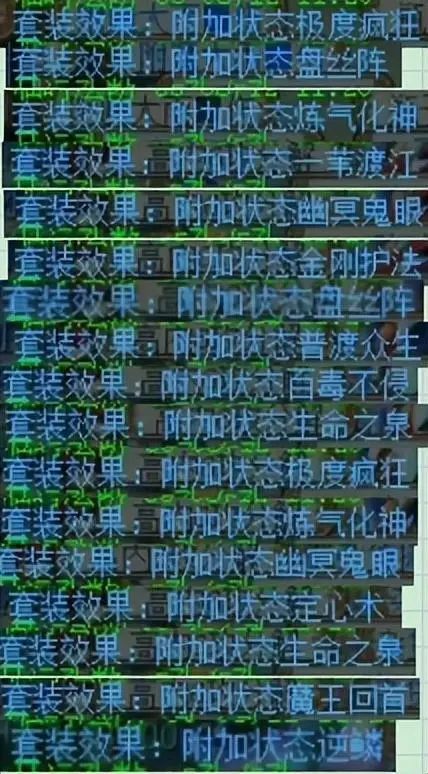 套装效果：附加状态极度疯狂
套装效果：附加状态盘丝阵
套装效果：附加状态炼气化神
套装效果：附加状态一苇渡江
套装效果：附加状态幽冥鬼眼
套装效果：附加状态金刚护法
套装效果：附加状态盘丝阵
套装效果：附加状态普渡众生
套装效果：附加状态百毒不侵
套装效果：附加状态生命之泉
套装效果：附加状态极度疯狂
套装效果：附加状态炼气化神
套装效果：附加状态幽冥鬼眼
套装效果：附加状态定心术
套装效果：附加状态生命之泉
套装效果：附加状态魔王回首
套装效果：附加状态逆鳞